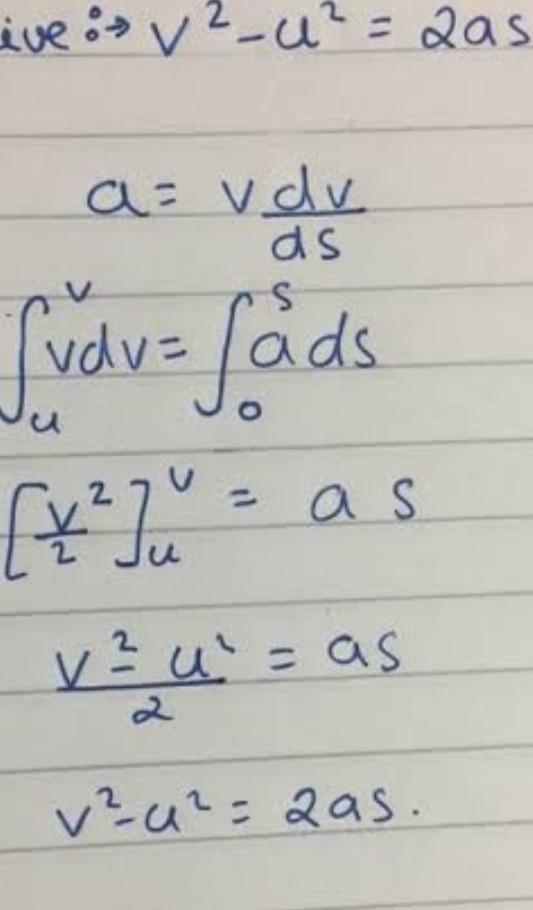 ive :→ v² - u² = 2as
a = v dv/ds
∫ᵤᵛ vdv = ∫₀ˢ a ds
[v²/2]ᵤᵛ = a s
v² - u²/2 = as
v² - u² = 2as.